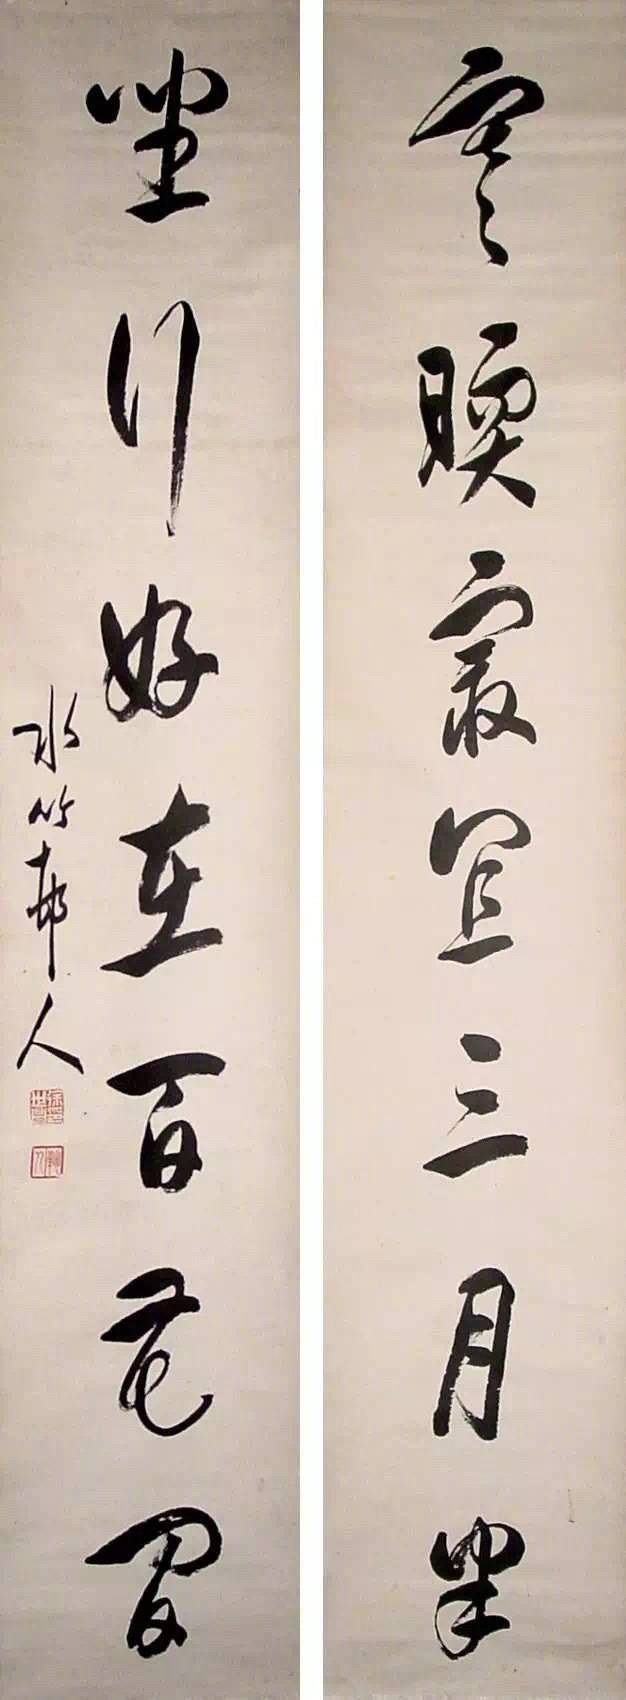 寒暖最宜三月半
坐行好在百花間
水竹邨人